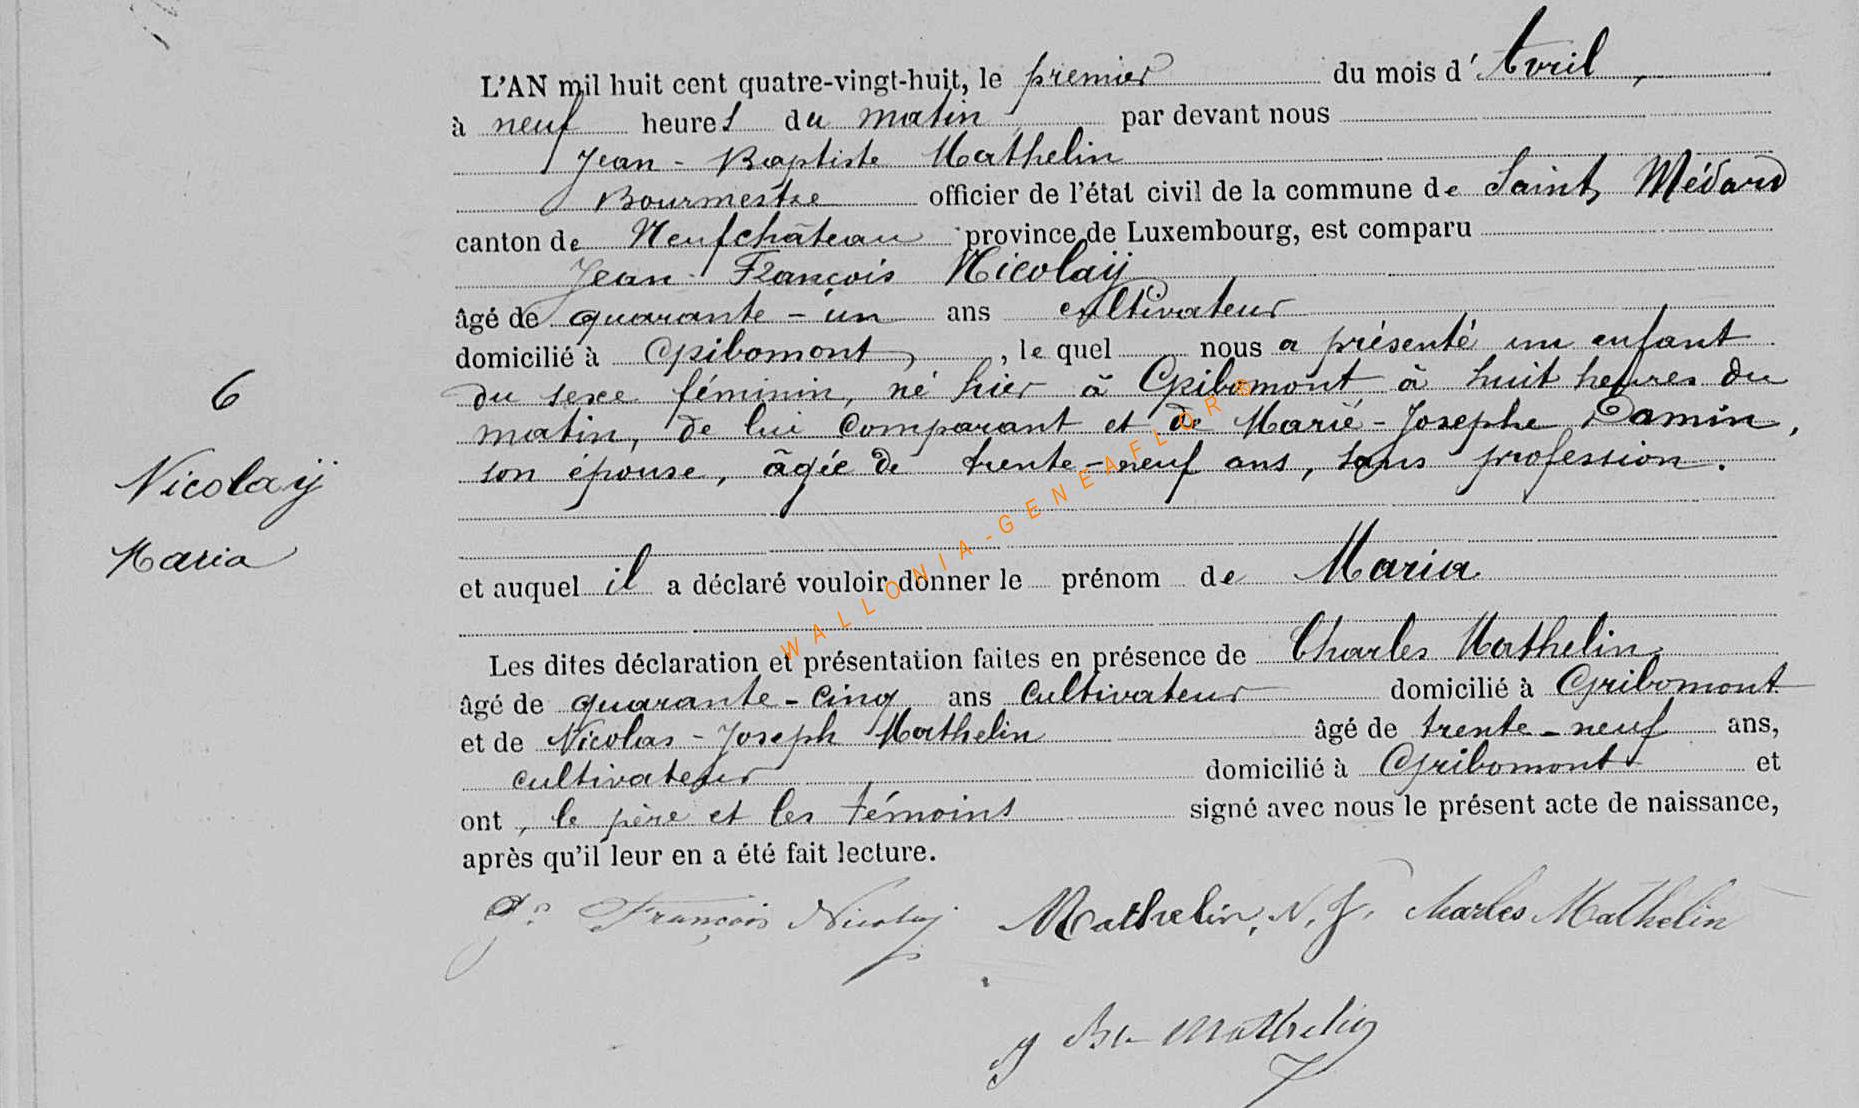 L'AN mil huit cent quatre-vingt-huit, le premier du mois d'Avril,
à neuf heures du matin par devant nous
Jean-Baptiste Mathelin
Bourmestre officier de l'état civil de la commune de Saint Médard
canton de Neufchâteau province de Luxembourg, est comparu
Jean-François Nicolaÿ
âgé de quarante-un ans cultivateur
domicilié à Gribomont, le quel nous a présenté un enfant
du sexe féminin, né hier à Gribomont à huit heures du
matin, de lui comparant et de Marie-Josephe Damin,
son épouse, âgée de trente-neuf ans, sans profession.
6
Nicolaÿ
Maria
et auquel il a déclaré vouloir donner le prénom de Maria
Les dites déclaration et présentation faites en présence de Charles Mathelin
âgé de quarante-cinq ans cultivateur domicilié à Gribomont
et de Nicolas-Joseph Mathelin âgé de trente-neuf ans,
cultivateur domicilié à Gribomont et
ont, le père et les témoins signé avec nous le présent acte de naissance,
après qu'il leur en a été fait lecture.
François Nicolaÿ Mathelin, N. J. Charles Mathelin
J Bte Mathelin
WALLONIA-GENEAFLOR